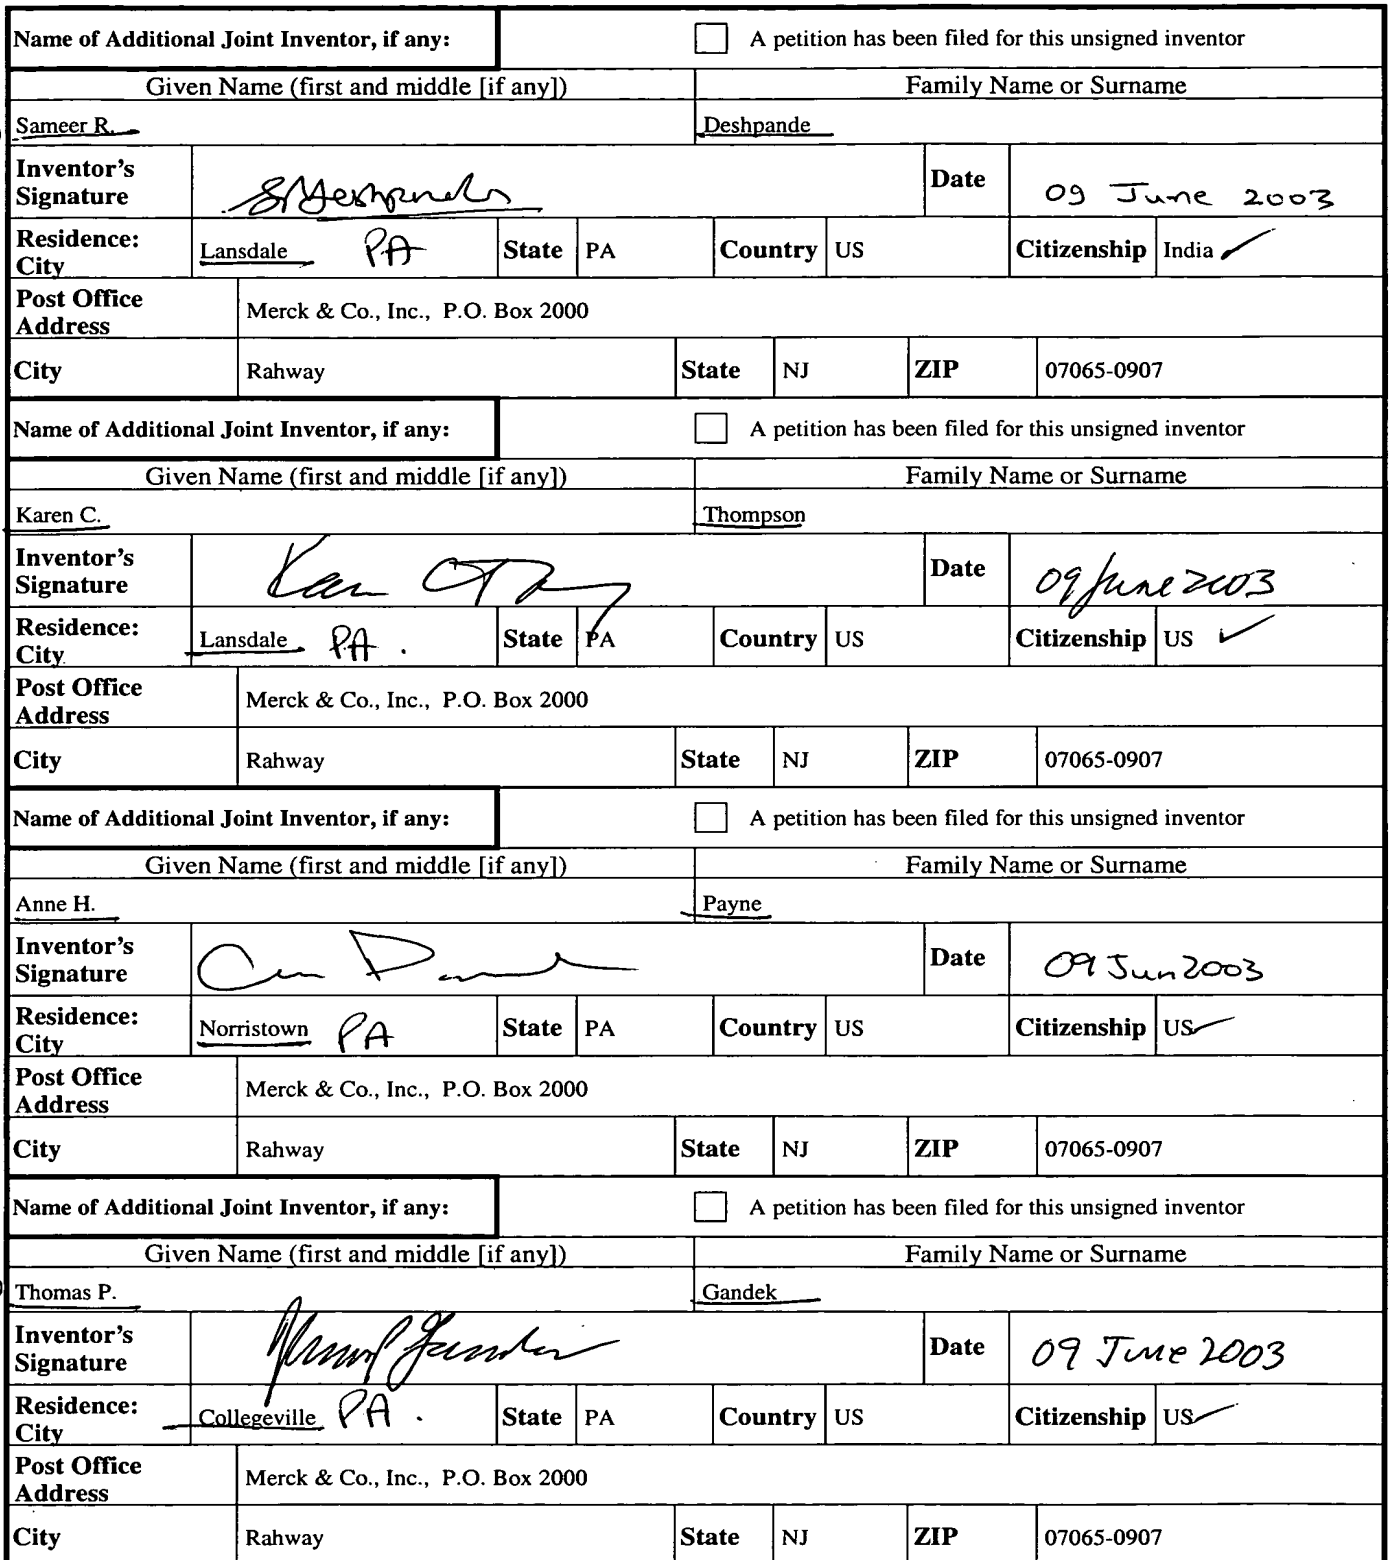 Name of Additional Joint Inventor, if any: A petition has been filed for this unsigned inventor
Given Name (first and middle [if any]) Family Name or Surname
Sameer R. Deshpande
Inventor's Signature SRDeshpande Date 09 June 2003
Residence: City Lansdale PA State PA Country US Citizenship India
Post Office Address Merck & Co., Inc., P.O. Box 2000
City Rahway State NJ ZIP 07065-0907
Name of Additional Joint Inventor, if any: A petition has been filed for this unsigned inventor
Given Name (first and middle [if any]) Family Name or Surname
Karen C. Thompson
Inventor's Signature Date 09 June 2003
Residence: City Lansdale PA. State PA Country US Citizenship US
Post Office Address Merck & Co., Inc., P.O. Box 2000
City Rahway State NJ ZIP 07065-0907
Name of Additional Joint Inventor, if any: A petition has been filed for this unsigned inventor
Given Name (first and middle [if any]) Family Name or Surname
Anne H. Payne
Inventor's Signature Date 09 Jun 2003
Residence: City Norristown PA State PA Country US Citizenship US
Post Office Address Merck & Co., Inc., P.O. Box 2000
City Rahway State NJ ZIP 07065-0907
Name of Additional Joint Inventor, if any: A petition has been filed for this unsigned inventor
Given Name (first and middle [if any]) Family Name or Surname
Thomas P. Gandek
Inventor's Signature Date 09 June 2003
Residence: City Collegeville PA. State PA Country US Citizenship US
Post Office Address Merck & Co., Inc., P.O. Box 2000
City Rahway State NJ ZIP 07065-0907